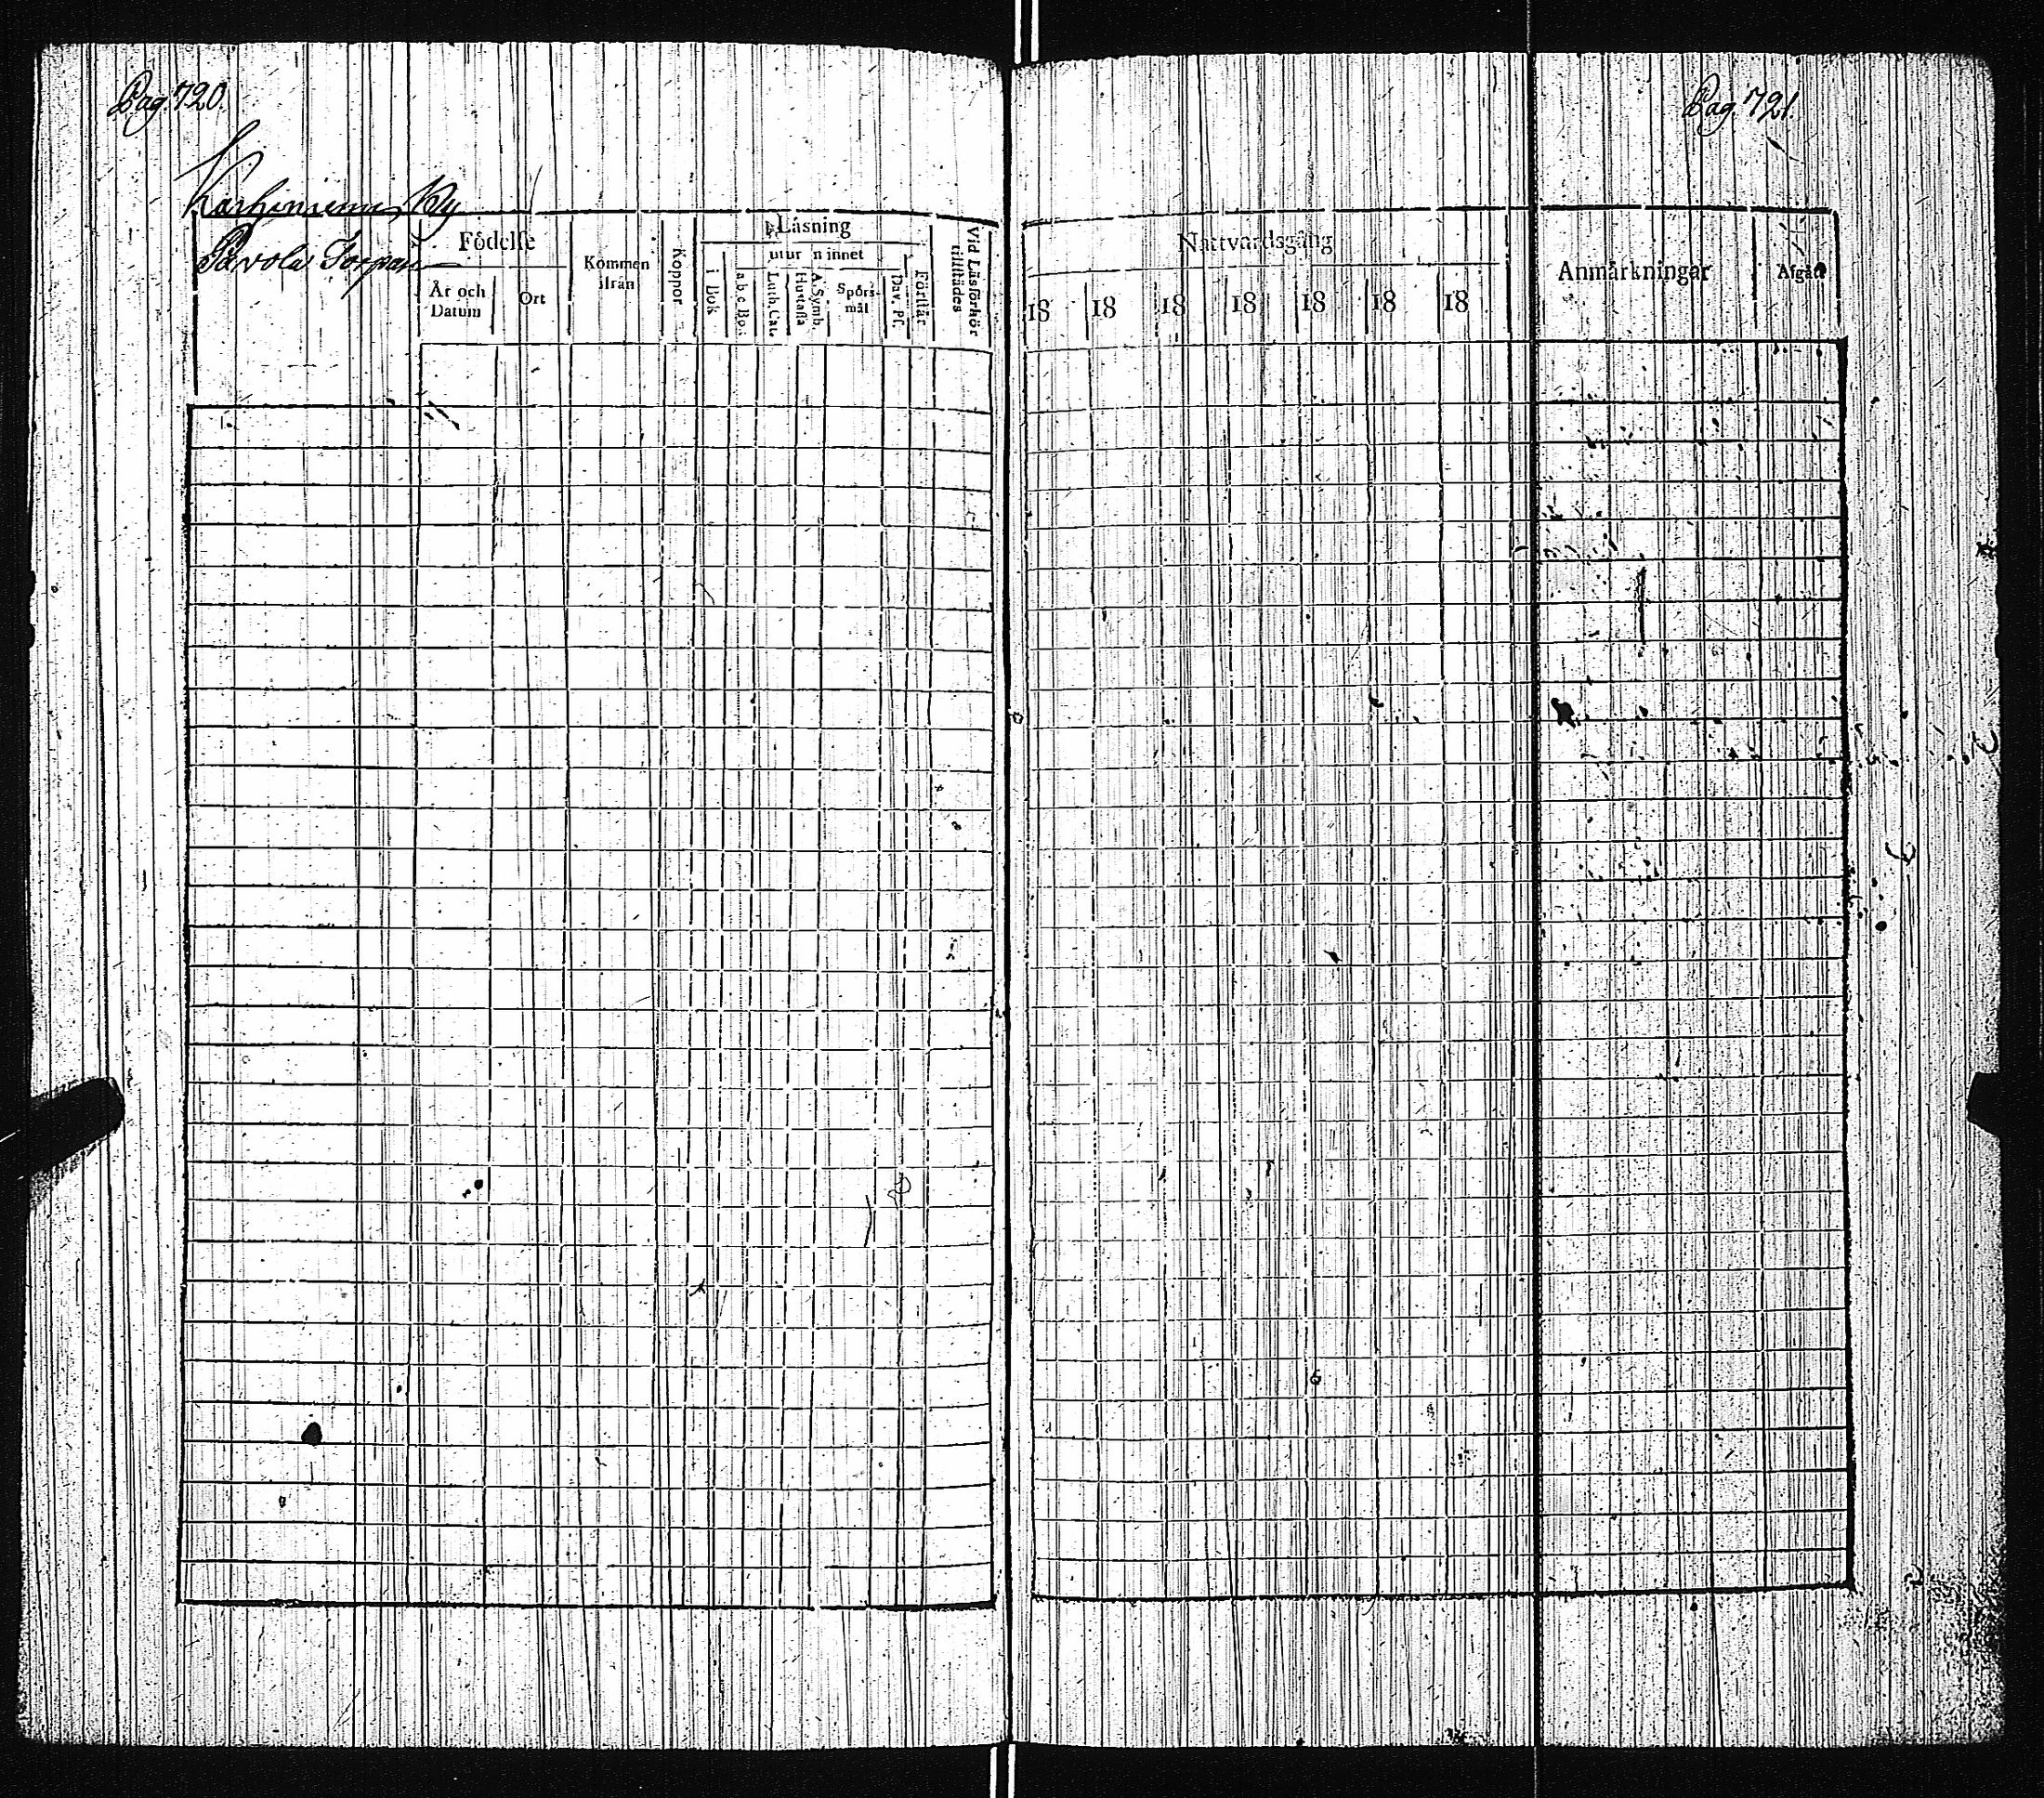 Pag. 720.
Pag. 721.
Karhunsemi By
Pavola Torpare
Födelse
År och Datum
Ort
Kommen ifrån
Koppor
Läsning
utur minnet
i Bok
a b c Bo:
Luth. Cat.
A. Symb. Hustafla
Spörs-mål
Dav. Ps.
Förstår
Vid Läsförhör tillstädes
Nattvardsgång
18 18 18 18 18 18 18
Anmärkningar
Afgått